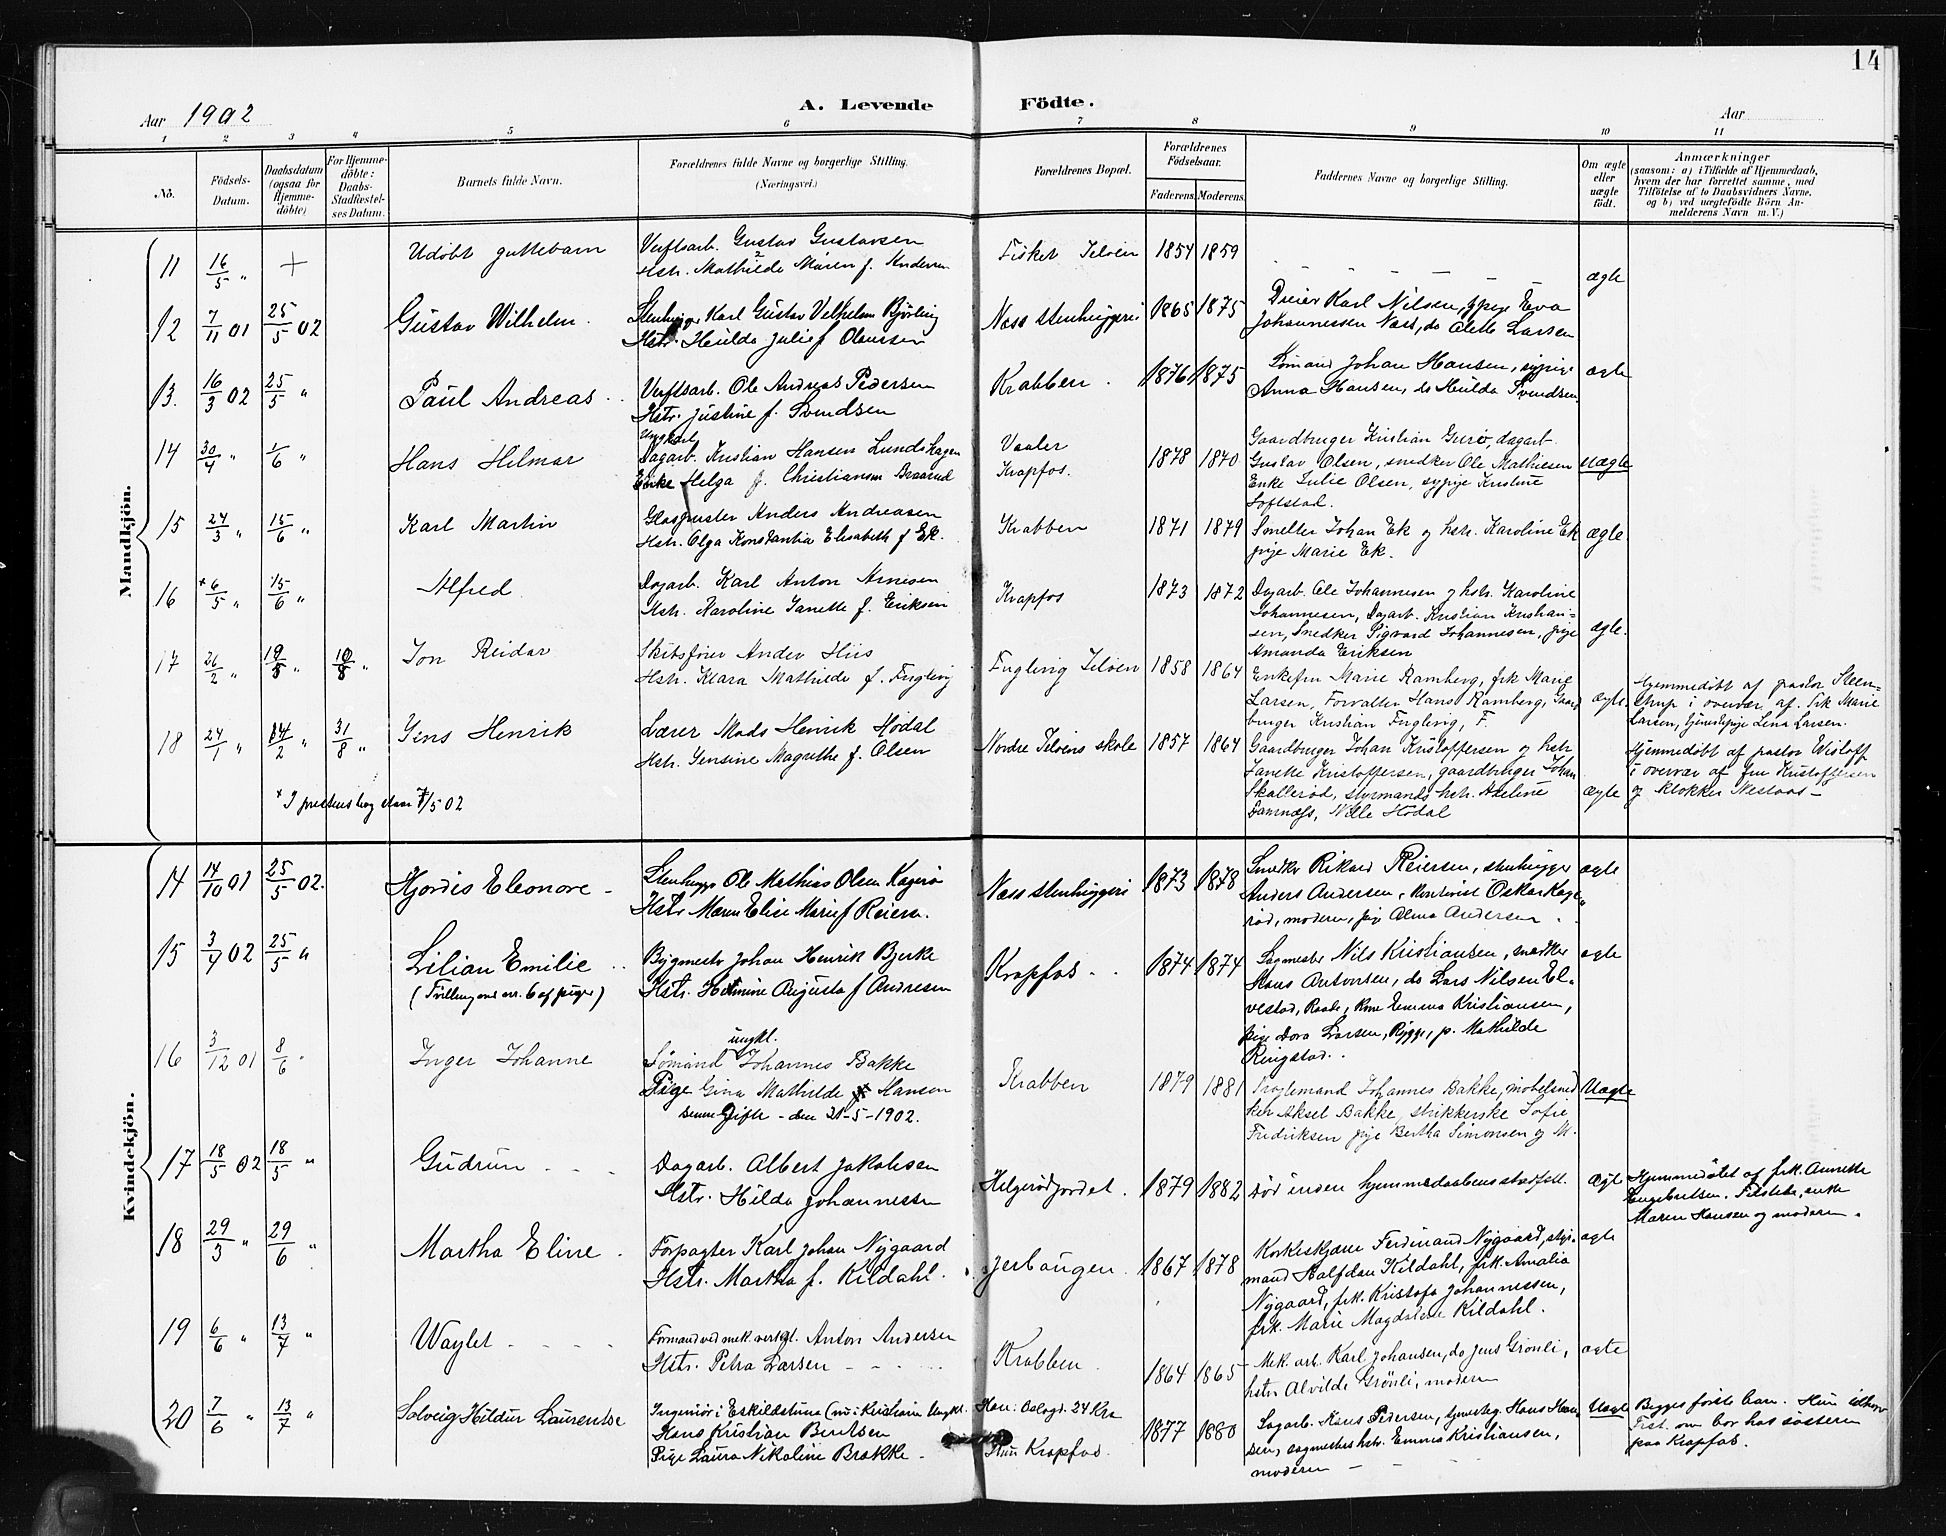 14
Aar 1902
A. Levende Födte.
Aar
1 2 3 4 5 6 7 8 9 10 11
No.
Födsels-Datum.
Daabsdatum (ogsaa for Hjemmedöbte)
For Hjemmedöbte: Daabs-Stadfæstelses Datum.
Barnets fulde Navn.
Forældrenes fulde Navne og borgerlige Stilling. (Næringsvei.)
Forældrenes Bopæl.
Forældrenes Födselsaar.
Faderens. Moderens.
Faddernes Navne og borgerlige Stilling.
Om ægte eller uægte födt.
Anmærkninger
(saasom: a) i Tilfælde af Hjemmedaab, hvem der har forrettet samme, med Tilföielse af to Daabsvidners Navne, og b) ved uægtefödte Börn Anmelderens Navn m. V.)
Mandkjön.
11 16/5 " + Udöbt guttebarn
Verftsarb. Gustav Gustavsen
Hstr. Mathilde Maren f. Andersen
Fisket Jelöen 1854 1859 ægte
12 7/11 01 25/5 02 Gustav Wilhelm.
Stenhugger Karl Gustav Vilhelm Björling
Hstr. Hulda Julie f Olaussen
Næss stenhuggeri 1865 1875
Dreier Karl Nilsen, pige Eva
Johannessen Næss, do Alette Larsen
13. 16/3 02 25/5 " Paul Andreas
Verftsarb. Ole Andreas Pedersen
Hstr. Justine f. Svendsen
Krabben. 1876 1875
Sömand Johan Hansen, sypige
Anna Hansen, do Hulda Svendsen
ægte
14 30/4 " 1/6 " Hans Hilmar
Ungkarl
Dagarb. Kristian Hansen Lundshagen
Enke Helga f. Christiansen Braarud
Vaaler
Krapfos. 1878 1870
Gaardbruger Kristian Gurö, dagarb.
Gustav Olsen, snedker Ole Mathiesen
Enke Julie Olsen, sypige Kristine
Softstad.
uægte
15 24/3 " 15/6 " Karl Martin
Glaspuster Anders Andreasen
Hstr. Olga Konstantia Elisabeth f Ek.
Krabben 1871 1879
Smelter Johan Ek og hstr. Karoline Ek
pige Marie Ek.
ægte.
16 × 6/5 " 15/6 " Alfred
Dagarb. Karl Anton Arnesen
Hstr. Karoline Janette f. Eriksen
Krapfos 1873 1872
Dagarb. Ole Johannesen og hstr. Karoline
Johannesen, Dagarb. Kristian Kristian-
sen, Snedker Sigvard Johannesen, pige
Amanda Eriksen
ægte.
17 26/2 " Jon Reidar
Skibsfører Anders Hiis
Hstr. Klara Mathilde f. Fuglevig
Fuglevig Jelöen 1858 1864
Enkefru Marie Ramberg, frk Marie
Larsen, Forvalter Hans Ramberg, Gaard
bruger Kristian Fuglevig, F.
ægte.
Hjemmedöbt af pastor Steen-
strup i overvær af. Frk Marie
Larsen, tjenestepige Lena Larsen.
18 24/1 " 31/8 " Jens Henrik
Lærer Mads Henrik Hødal
Hstr. Jensine Magrethe f. Olsen
Nordre Jelöens skole 1857 1864
Gaardbruger Johan Kristoffersen og hstr
Janette Kristoffersen, gaardbruger Johan
Skallerød, styrmands hstr. Adeline
Hødal
ægte
Hjemmedöbt af pastor Wisløff
i overvær af fru Kristoffersen
og klokker Nestaas –
× I prestens bog staar 7/5 02
Kvindekjön.
14 14/10 01 25/5 02. Hjordis Eleonore –
Stenhugger Ole Mathias Olsen Kagerö
Hstr Maren Elise Marie f Reiersen.
Næss stenhuggeri 1873 1878
Smedkr Rikard Reiersen, stenhugger
Anders Andersen, Kontorist Oskar Kage
röd, moderen, pige Alma Andersen
ægte
15 02 25/5 " Lilian Emilie
(Tvilling med nr. 6 af piger)
Bygmestr Johan Henrik Bjerke
Hstr. Hermine Augusta f Andresen
Krapfos. 1874 1874
Sagmester Nils Kristiansen, snedker
Hans Antonsen, do Lars Nilsen El-
vestad, Raade, Kone Emma Kristiansen,
pige Dora Larsen, Rygge, p. Mathilde
Ringstad.
ægte
16 3/12 01 8/6 Inger Johanne
ungkl.
Sömand Johannes Bakke
Pige Gina Mathilde Hansen
Senere Gifte – den 21-5-1902.
Krabben 1879 1881
Johannes Bakke, möbelsned
ker Aksel Bakke, strikkerske Sofie
Fredriksen pige Bertha Simonsen og M.
Uægte
17 18/5 02 18/5 " Gudrun
Dagarb. Albert Jakobsen
Hstr. Hilda Johannessen
Helgerödjordet. 1879 1882
död inden hjemmedaabens stadfest.
ægte
Hjemmedöbt af frk. Annette
Engebretsen. Tilstede, enke
Maren Hansen og moderen.
18 29/3 " 29/6 " Martha Eline.
Forpagter Karl Johan Nygaard
Hstr. Martha f. Kildahl.
Jerbaugen. 1867 1878
Korkeskjærer Ferdinand Nygaard, styr-
mand Halfdan Kildahl, frk. Amalia
Nygaard, frk. Kristofa Johannessen,
frk. Marie Magdalene Kildahl.
ægte
19 6/6 " 13/7 " Waylet
Formand ved mek. verkst. Anton Andersen
Hstr. Petra Larsen
Krabben. 1864 1865
Mek. arb. Karl Johansen, do Jens Grönli,
hstr Alvilde Grönli, moderen
ægte
20 7/6 " 13/7 " Solveig Hildur Laurentse
Ingeniör i Eskildstuna (nu i Kristiania Ungkl.
Hans Kristian Berntsen
Pige Laura Nikoline Brakke –
Han: Oslogd. 24 Kra
Hun Krapfos. 1877 1880
Sagarb. Hans Pedersen, Hans Han-
sen, sagmesters hstr. Emma Kristiansen,
moderen
Uægte
Begges förste barn. Hun
Fist. om bor hos søsteren
paa Krapfos.